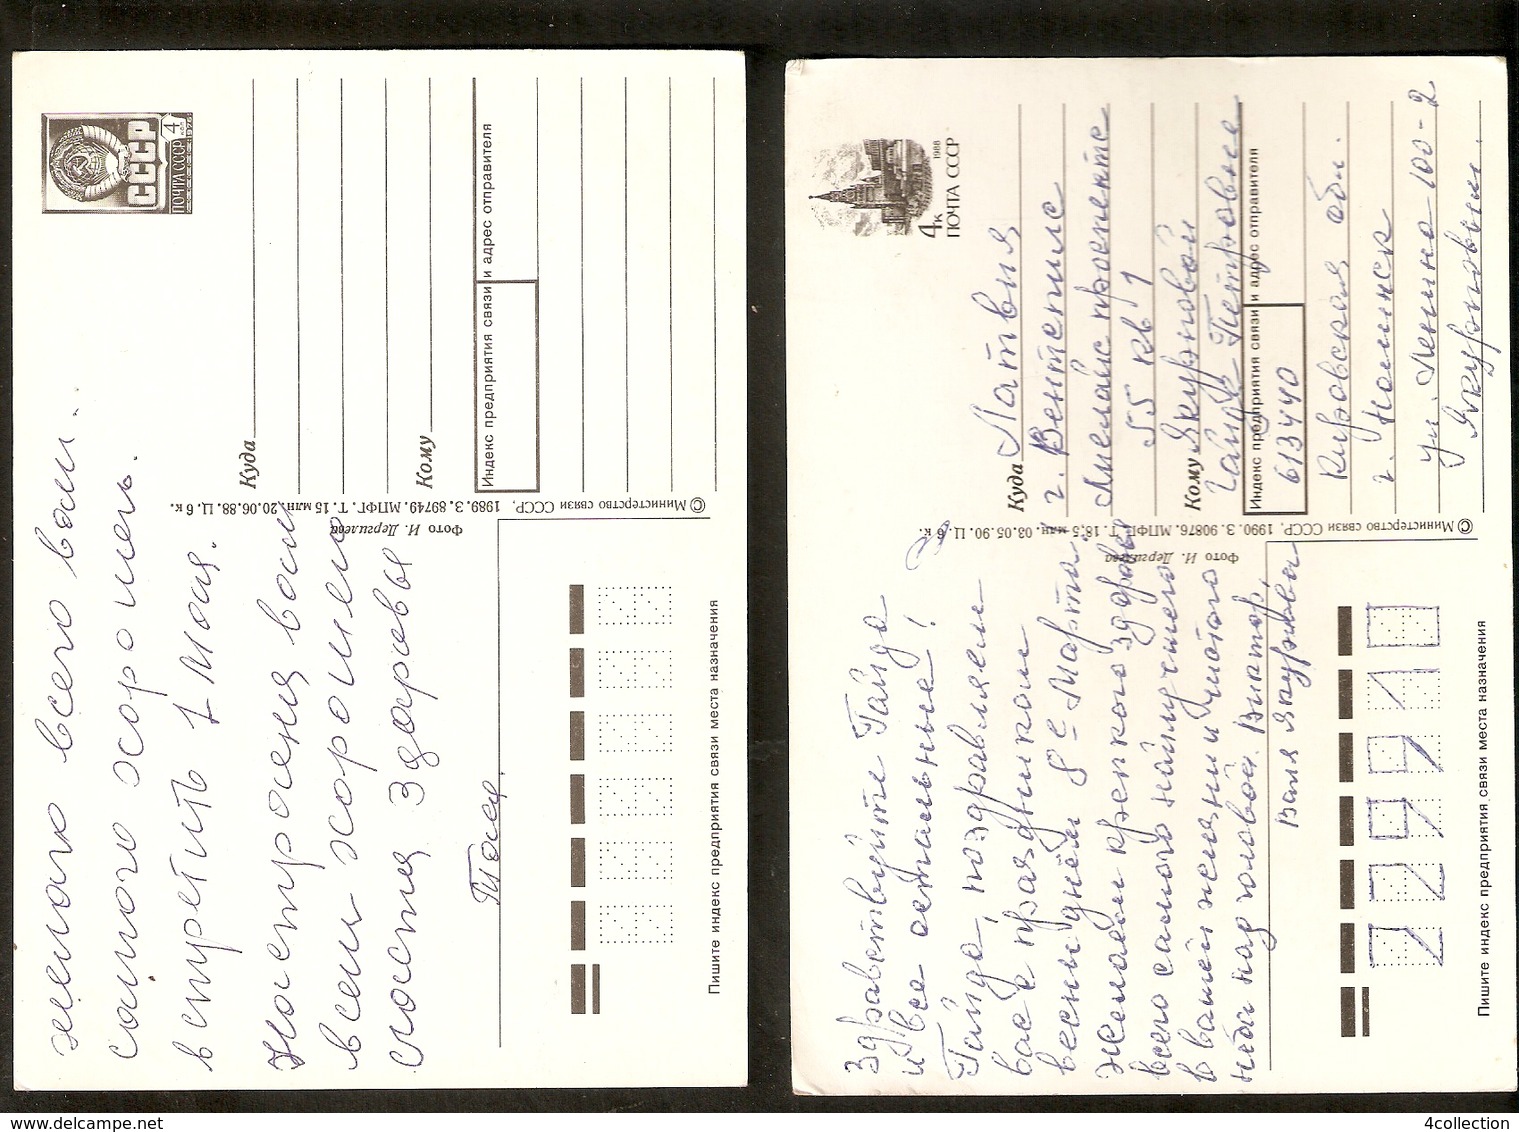 желаю всего вам..
самого хорошего.
встретить 1 Мая.
Настроения вам
всем хорошего
счастья здоровья
Тося.
СССР
4
ПОЧТА СССР
Куда
Кому
Индекс предприятия связи и адрес отправителя
© Министерство связи СССР, 1989. З. 89749. МПФГ. Т. 15 млн. 20.06.88. Ц. 6 к.
Фото И. Дергилева
Пишите индекс предприятия связи места назначения
4к
1988
ПОЧТА СССР
Куда Латвия
г. Вентспилс
проспекте
55 кв 1
Кому Якуновой
Гайде Петровне
Индекс предприятия связи и адрес отправителя
613440
Кировская обл.
г. Нолинск
ул. Ленина-100-2
© Министерство связи СССР, 1990. З. 90876. МПФГ. Т. 18,5 млн. 03.05.90. Ц. 6 к.
Фото И. Дергилева
Здравствуйте Гайда
и все остальные!
Гайда, поздравляем
вас с праздником
весны днём 8е Марта
Желаем крепкого здоровья
всего самого наилучшего
в вашей жизни и чистого
неба над головой. Виктор,
Валя
Пишите индекс предприятия связи места назначения
www.delcampe.net
4collection